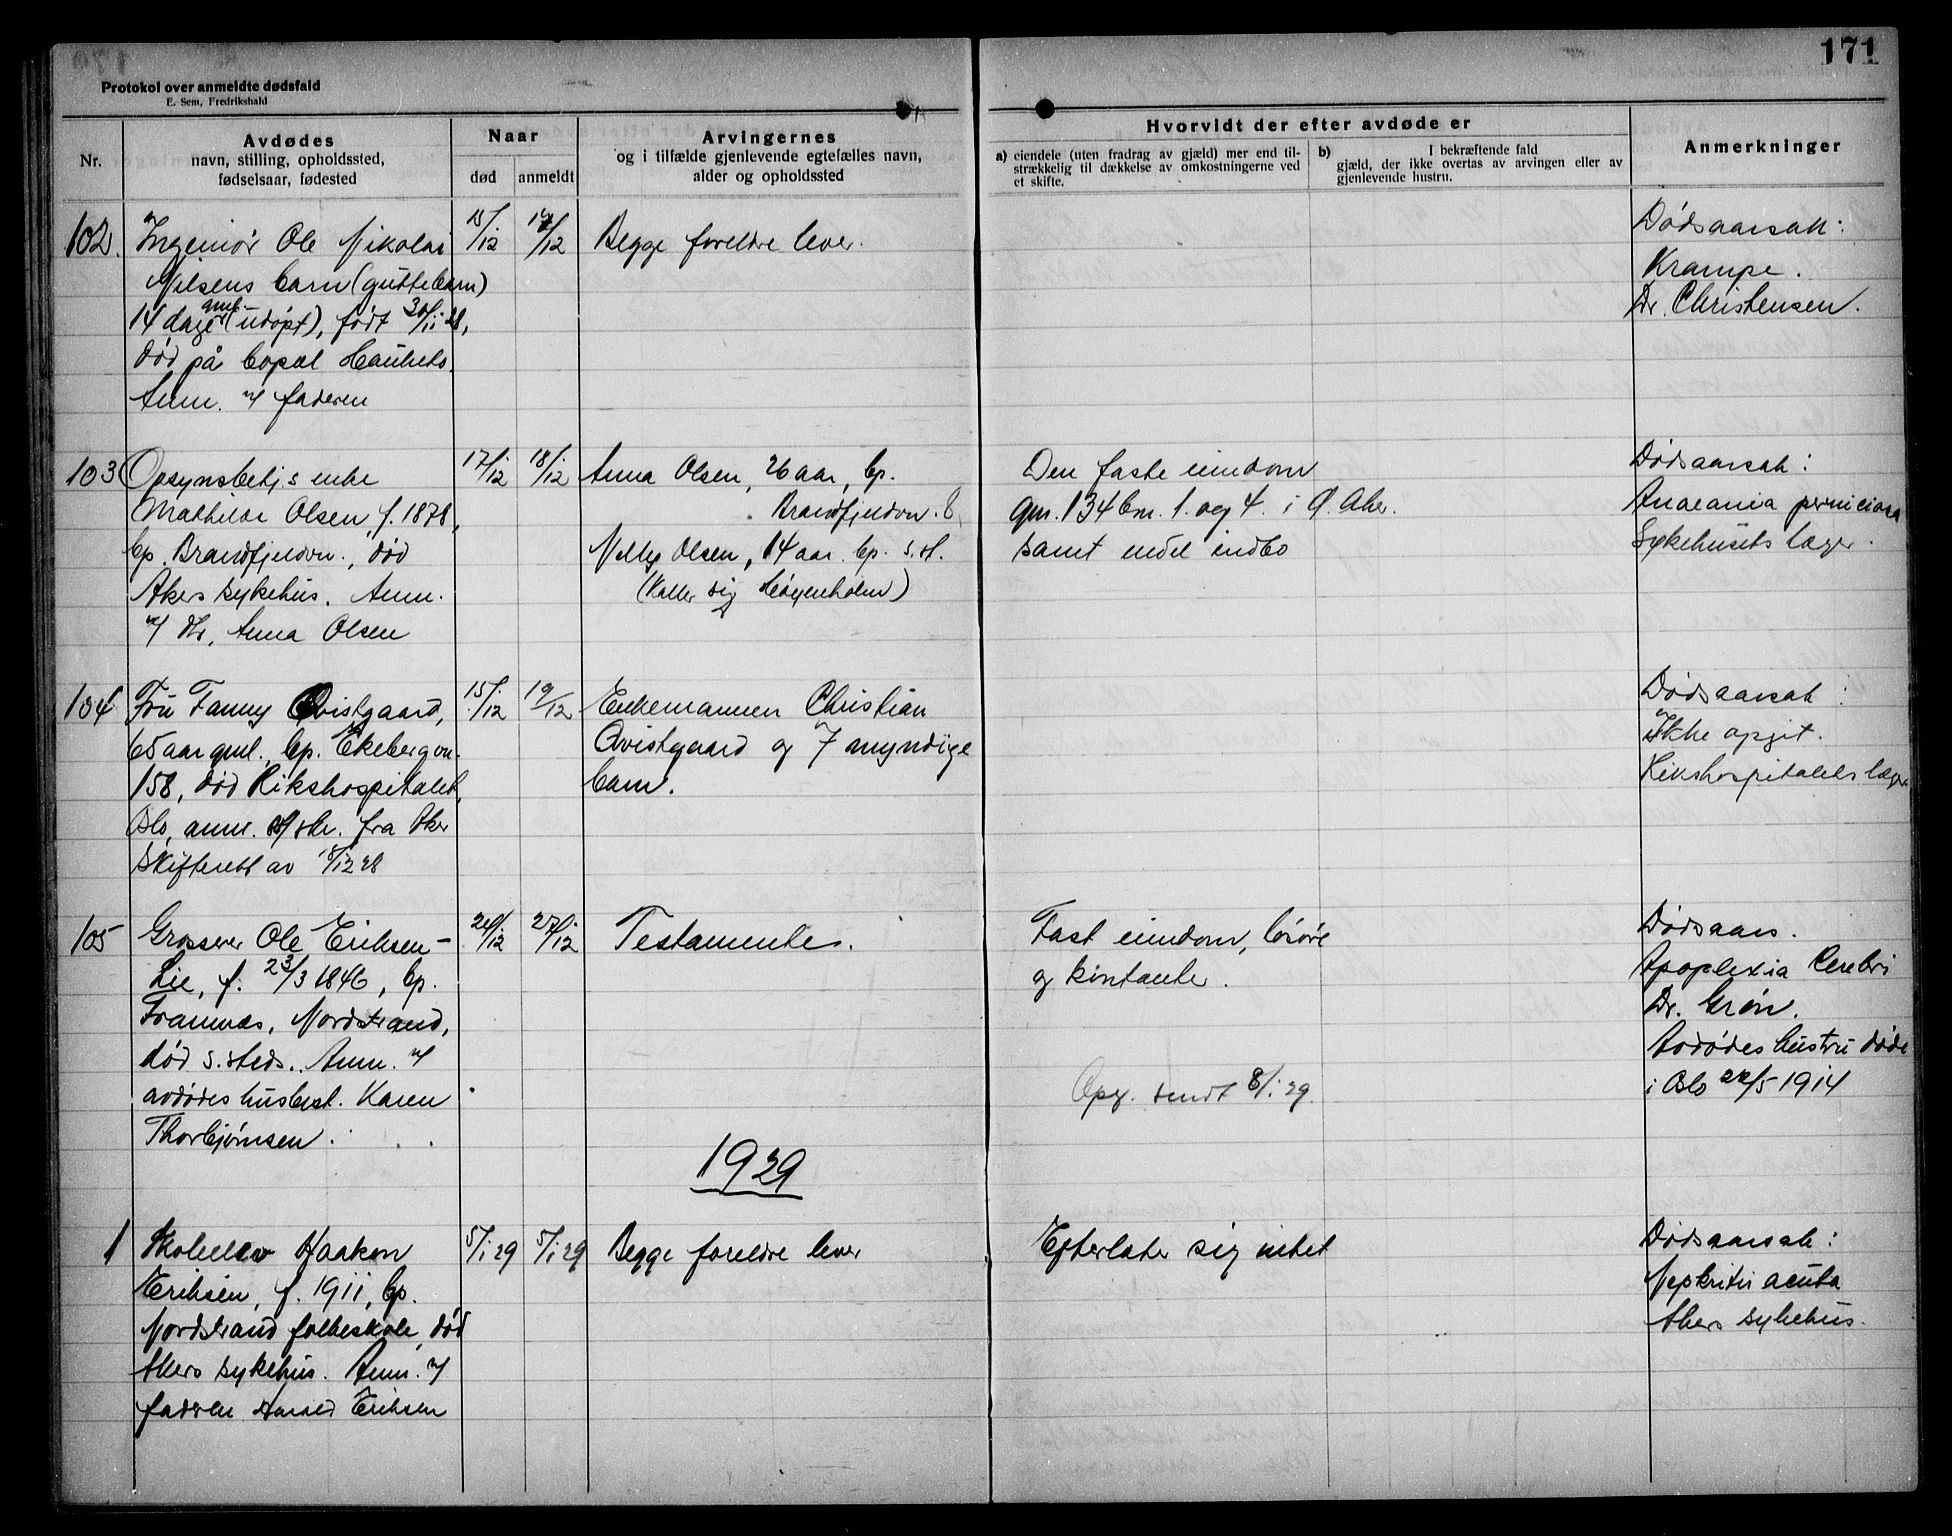 171
Protokol over anmeldte dødsfald
E. Sem, Fredrikshald
Nr.
Avdødes
navn, stilling, opholdssted,
fødselsaar, fødested
Naar
død
anmeldt
Arvingernes
og i tilfælde gjenlevende egtefælles navn,
alder og opholdssted
Hvorvidt der efter avdøde er
a) eiendele (uten fradrag av gjæld) mer end til-
strækkelig til dækkelse av omkostningerne ved
et skifte.
b) I bekræftende fald
gjæld, der ikke overtas av arvingen eller av
gjenlevende hustru.
Anmerkninger
102.
Ingeniør Ole Nikolai
Nilsens barn (guttebarn)
14 dage gml. (udøpt), født 30/11 28,
død på
Anm. v/ faderen
15/12
Begge foreldre lever.
Dødsaarsak:
Krampe.
Dr. Christensen.
103
Opsynsbetj.s enke
Mathilde Olsen f. 1878,
bp. Brandfjeldvn., død
Akers sykehus. Anm.
v/ dtr. Anna Olsen
17/12
18/12
Anna Olsen, 26 aar, bp.
Brandfjeldvn. 8,
Nelly Olsen, 14 aar. bp. s.st.
(Kaller sig Høyenholm)
Den faste eiendom
gnr. 134 bnr. 1. og 4. i Ø. Aker.
samt endel indbo
Dødsaarsak:
Anaemia perniciosa
Sykehusets læger.
104
Fru Fanny Qvistgaard,
65 aar gml. bp. Ekebergvn.
158, død Rikshospitalet,
Oslo, anm. v/ skr. fra Aker
Skifterett av 18/12 28
15/12
19/12
Enkemannen Christian
Qvistgaard og 7 myndige
barn.
Dødsaarsak:
Ikke opgit.
Rikshospitalets læger
105
Grosserer Ole Eriksen-
Lie, f. 23/3 1846, bp.
Framnæs, Nordstrand,
død s.steds. Anm. v/
avdødes husbest. Karen
Thorbjørnsen.
27/12
Testamente.
Fast eiendom, løsøre
og kontanter.
Opg. sendt 8/1 29.
Dødsaars.
Apoplexia Cerebri
Dr. Grøn.
Avdødes hustru døde
i Oslo 22/5 1914
1929
1
Skoleelev Haakon
Eriksen, f. 1911, bp.
Nordstrand folkeskole, død
Akers sykehus. Anm. v/
faderen Harald Eriksen
5/1 29
5/1 29
Begge foreldre lever
Efterlater sig intet
Dødsaarsak:
Nephritis acuta
Akers sykehus.